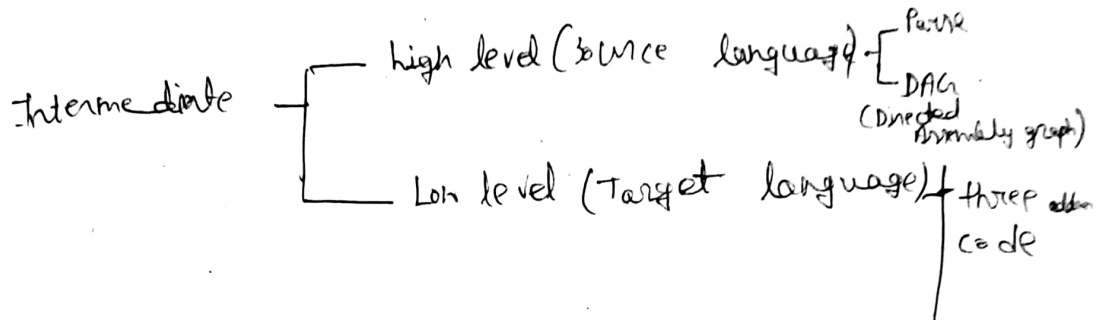 Intermediate
high level (source language)
Parse
DAG
(Directed
Assembly graph)
Low level (Target language)
three
code